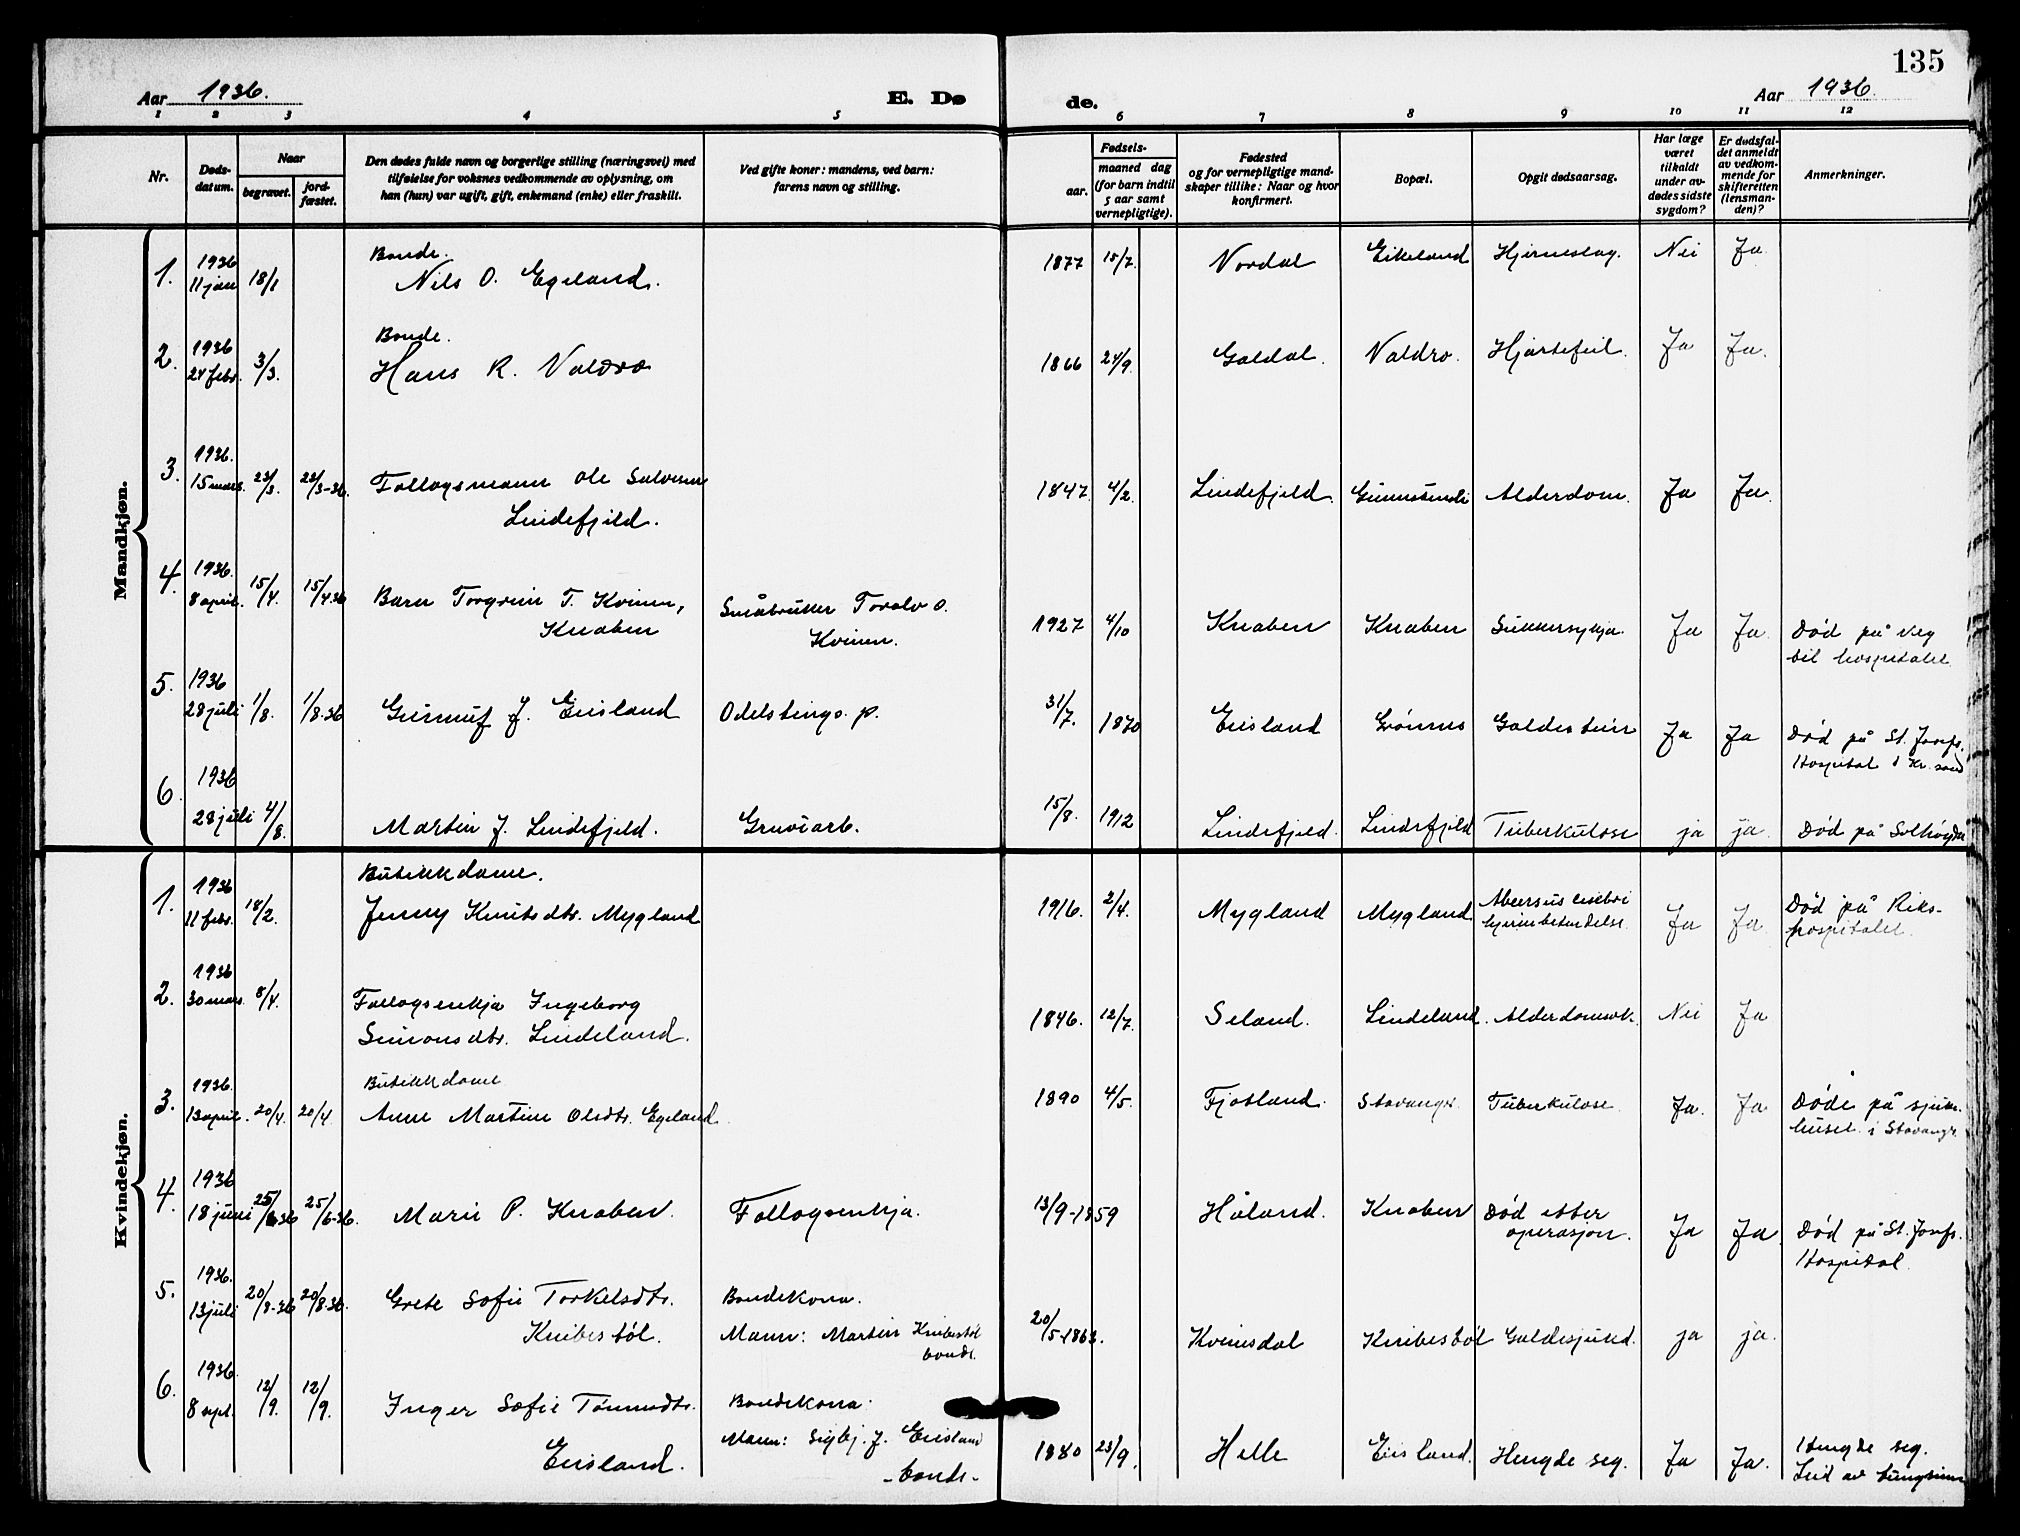 135
Aar 1936.
E. Dø
de.
Aar 1936.
1 2 3 4 5 6 7 8 9 10 11 12
Nr.
Døds-
datum.
Naar
begravet.
jord-
fæstet.
Den dødes fulde navn og borgerlige stilling (næringsvei) med
tilføielse for voksnes vedkommende av oplysning, om
han (hun) var ugift, gift, enkemand (enke) eller fraskilt.
Ved gifte koner: mandens, ved barn:
farens navn og stilling.
Fødsels-
aar.
maaned dag
(for barn indtil
5 aar samt
vernepligtige).
Fødested
og for vernepligtige mand-
skaper tillike: Naar og hvor
konfirmert.
Bopæl.
Opgit dødsaarsag.
Har læge
været
tilkaldt
under av-
dødes sidste
sygdom?
Er dødsfal-
det anmeldt
av vedkom-
mende for
skifteretten
(lensman-
den)?
Anmerkninger.
Mandkjøn.
1. 1936 11 jan 18/1 Bonde.
Nils O. Egeland. 1877 15/7. Nordal Eikeland Hjerneslag. Nei Ja
2. 1936 24 febr. 3/3. Bonde.
Hans R. Valdro 1866 24/9. Galdal. Valdro. Hjartefeil. Ja Ja.
3. 1936. 15 mars. 23/3. 23/3-36. Follogsmann Ole Salvesen
Lindefjeld. 1847 4/2. Lindefjeld. Alderdom. Ja Ja.
4. 1936. 8 april. 15/4. 15/4.36 Barn Torgrim T. Kvinen,
Knaben
Småbruker Toralv O.
Kvinen. 1927 4/10 Knaben Knaben Sukkersykja. Ja Ja. Død på veg
til hospitalet
5. 1936 28 juli 1/8. 1/8.36 Gunnuf J. Eiesland Odelstings. p. 31/7. 1870 Eiesland Galdestein Ja Ja Død på St. Josefs.
Hospital i Kr. sand
6. 1936 28 juli 4/8. Martin J. Lindefjeld. Gruvearb. 15/8. 1912 Lindefjeld. Lindefjeld Tuberkulose ja ja. Død på Solhøgda
Kvindekjøn.
1. 1936 11 febr. 18/2. Butikkdame.
Jenny Knutsdtr. Mygland 1916. 2/4. Mygland Mygland
hjernebetendelse. Ja Ja. Død på Riks-
hospitalet.
2. 1936 30 mars. 8/4. Follogsenkja Ingeborg
Simonsdtr. Lindeland. 1846. 12/7. Seland. Lindeland. Alderdomsvk. Nei Ja
3. 1936. 13 april. 20/4. 20/4 Butikkdame
Anne Martine Olsdtr. Egeland. 1890 4/5. Fjotland. Stavanger. Tuberkulose. Ja. Ja Døde på sjuke-
huset i Stavanger.
4. 1936 18 juni 25/6 36 25/6-36. Marie P. Knaben. Follogsenkja. 13/9-1859 Håland. Knaben Død etter
operasjon. Ja Ja. Død på St. Josefs.
Hospital.
5. 1936. 13 juli 20/8-36 20/8-36. Grete Sofie Torkelsdtr.
Knibestøl.
Bondekona.
Mann: Martin Knibestøl
bonde. 20/5-1863. Kvinesdal Knibestøl Galdesjukd. ja ja.
6. 1936. 8 sept. 12/9. 12/9. Inger Sofie Tønnesdtr.
Eiesland.
Bondekona.
Mann: Sigbj. J. Eiesland
- bonde - 1880 23/9. Helle Eiesland. Hengde seg. Ja Ja. Hengde seg.
Leid av tungsinn